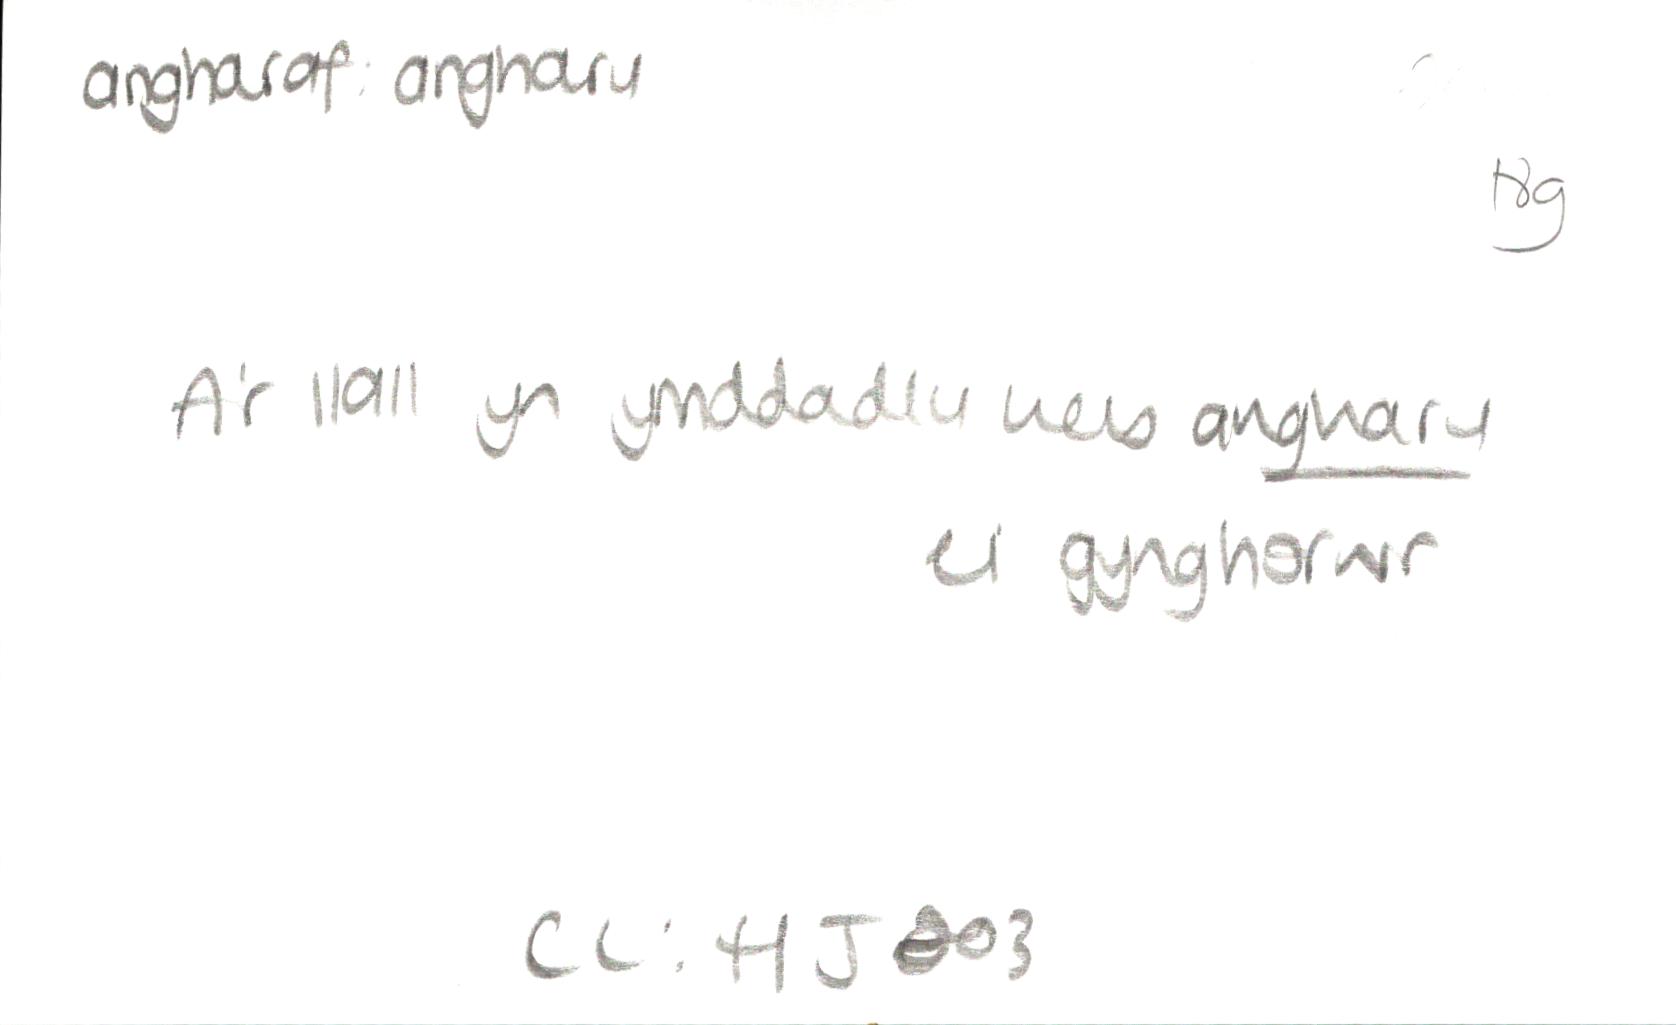 angharaf: angharu
18g
A'r llall yn ymddadlu angharu
ei gynghorwr
HJ